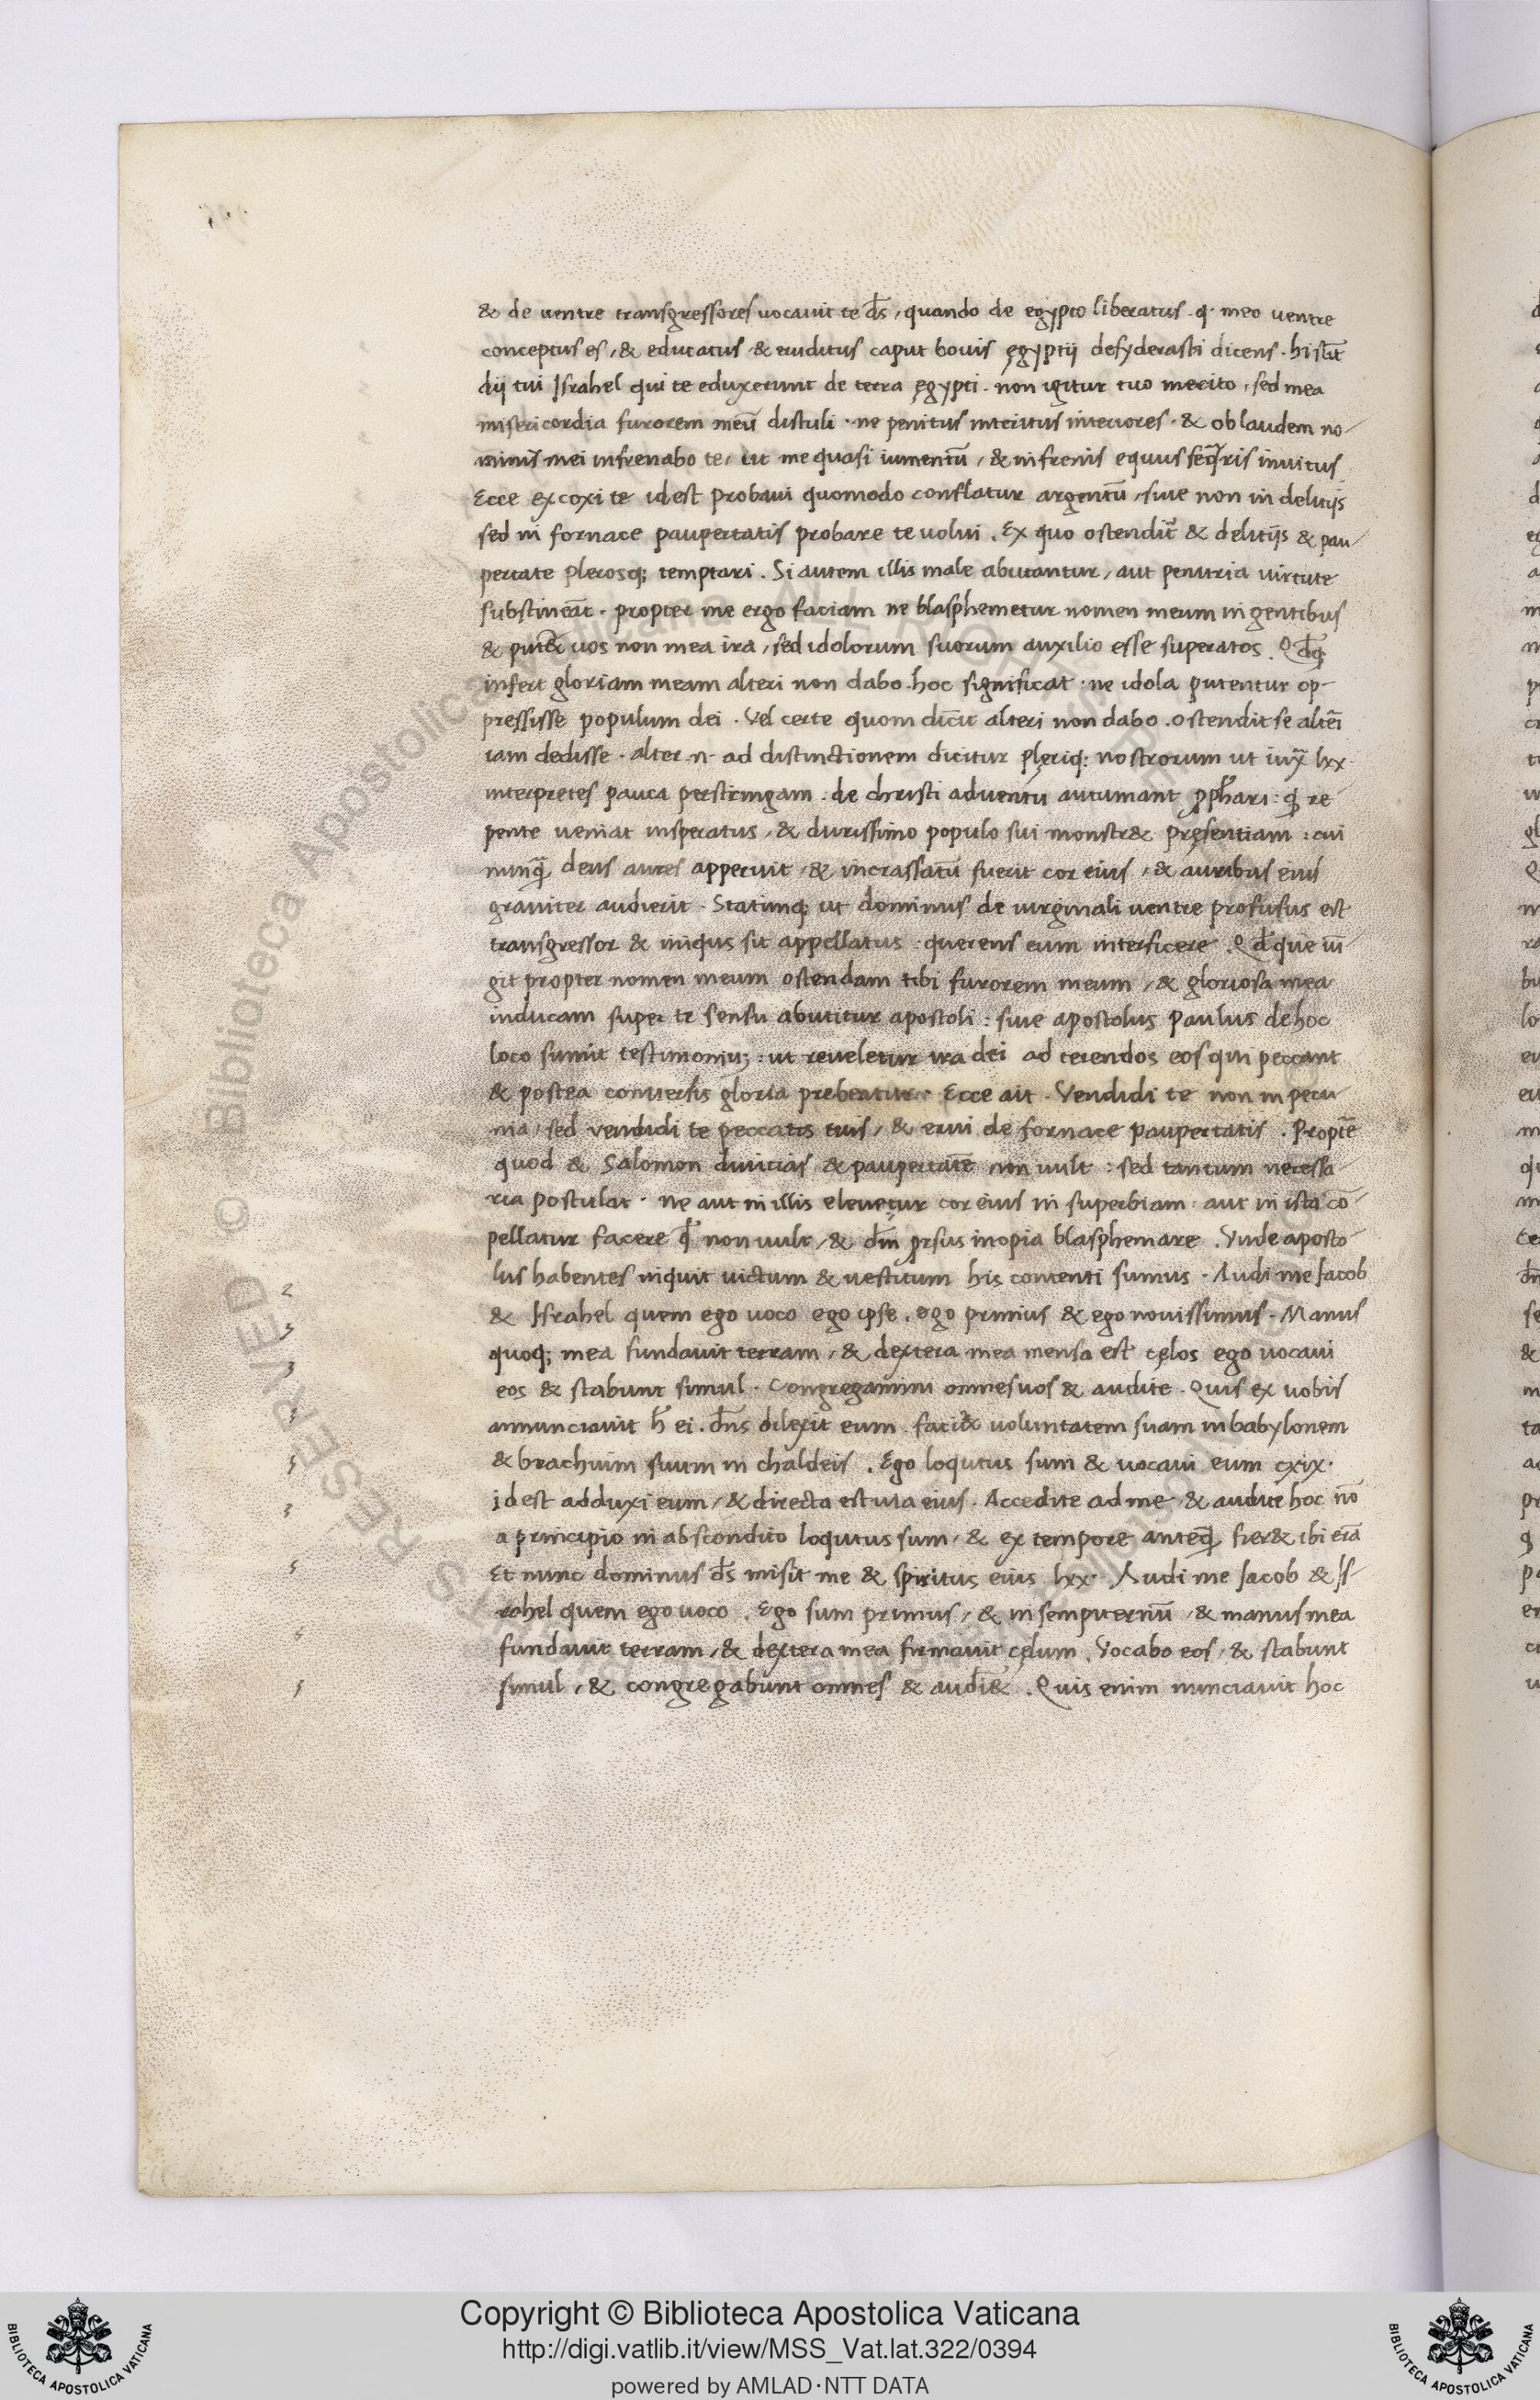 & de uentre transgressores uocauit te d̄s, quando de egypto liberatus. q meo uentre
conceptus es, & educatus & eruditus caput bouis ęgyptij desyderasti dicens. hi su͂t
dij tui Israhel qui te eduxerunt de terra ęgypti. non igitur tuo merito, sed mea
misericordia furorem meū distuli. ne penitus interitus interiores. & ob laudem no-
minis mei infrenabo te, ut me quasi iumentū, & infrenis equus seq̄ris inuitus
Ecce excoxi te idest probaui quomodo conflatur argentū, siue non in delitijs
sed in fornace paupertatis probare te uolui. Ex quo ostendit̄ & delitijs & pau-
pertate plerosq; temptari. Si autem illis male abutantur, aut penuria uirtute
substineāt. propter me ergo faciam ne blasphemetur nomen meum in gentibus
& put& uos non mea ira, sed idolorum suorum auxilio esse superatos. Qd̄q
infert gloriam meam alteri non dabo. hoc significat. ne idola putentur op-
pressisse populum dei. Vel certe quom dicit alteri non dabo. ostendit se alt̄ei
iam dedisse. alter .n. ad distinctionem dicitur plęriq; nostrorum ut iux̄ lxx
interpretes pauca perstringam. de christi aduentu autumant ꝓph̄ari: q̄ re-
pente ueniat insperatus, & durissimo populo sui monstr& pręsentiam: cui
nunq̄ deus aures apperuit, & incrassatū fuerit cor eius, & auribus eius
grauiter audierit. Statimq; ut dominus de uirginali uentre profusus est
transgressor & iniqus sit appellatus: querens eum interficere. Qd̄ que iū-
git propter nomen meum ostendam tibi furorem meum, & gloriosa mea
inducam super te sensu abutitur apostoli: siue apostolus Paulus de hoc
loco sumit testimoniu;: ut reueletur ira dei ad terendos eos qui peccant
& postea conuersis gloria prebeatur. Ecce ait. Vendidi te non in pecu-
nia, sed vendidi te peccatis tuis, & erui de fornace paupertatis. Propt̄e
quod & Salomon diuitias & paupertatē non uult: sed tantum necessa-
ria postulat. ne aut in illis eleuetur cor eius in superbiam, aut in ista cō-
pellatur facere q̄ non uult, & dn̄m ꝓrsus inopia blasphemare. Vnde aposto-
lus habentes inquit uictum & uestitum his contenti sumus. Audi me Jacob
& Israhel quem ego uoco ego ipse. ego primus & ego nouissimus. Manus
quoq; mea fundauit terram, & dextera mea mensa est cęlos ego uocaui
eos & stabunt simul. Congregamini omnes uos & audite. Quis ex uobis
annunciauit h̄ ei. dn̄s dilexit eum. faci& uoluntatem suam in babylonem
& brachium suum in chaldeis. Ego loqutus sum & uocaui eum cxix.
idest adduxi eum, & directa est uia eius. Accedite ad me, & audite hoc nō
a principio in abscondito loqutus sum, & ex tempore anteq̄ fier& ibi erā
Et nunc dominus d̄s misit me & spiritus eius lxx. Audi me Jacob & Js-
rahel quem ego uoco. Ego sum primus, & in sempiternū, & manus mea
fundauit terram, & dextera mea firmauit cęlum. Vocabo eos, & stabunt
simul, & congregabunt omnes & audi&. Quis enim nunciauit hoc
Copyright © Biblioteca Apostolica Vaticana
http://digi.vatlib.it/view/MSS_Vat.lat.322/0394
powered by AMLAD·NTT DATA